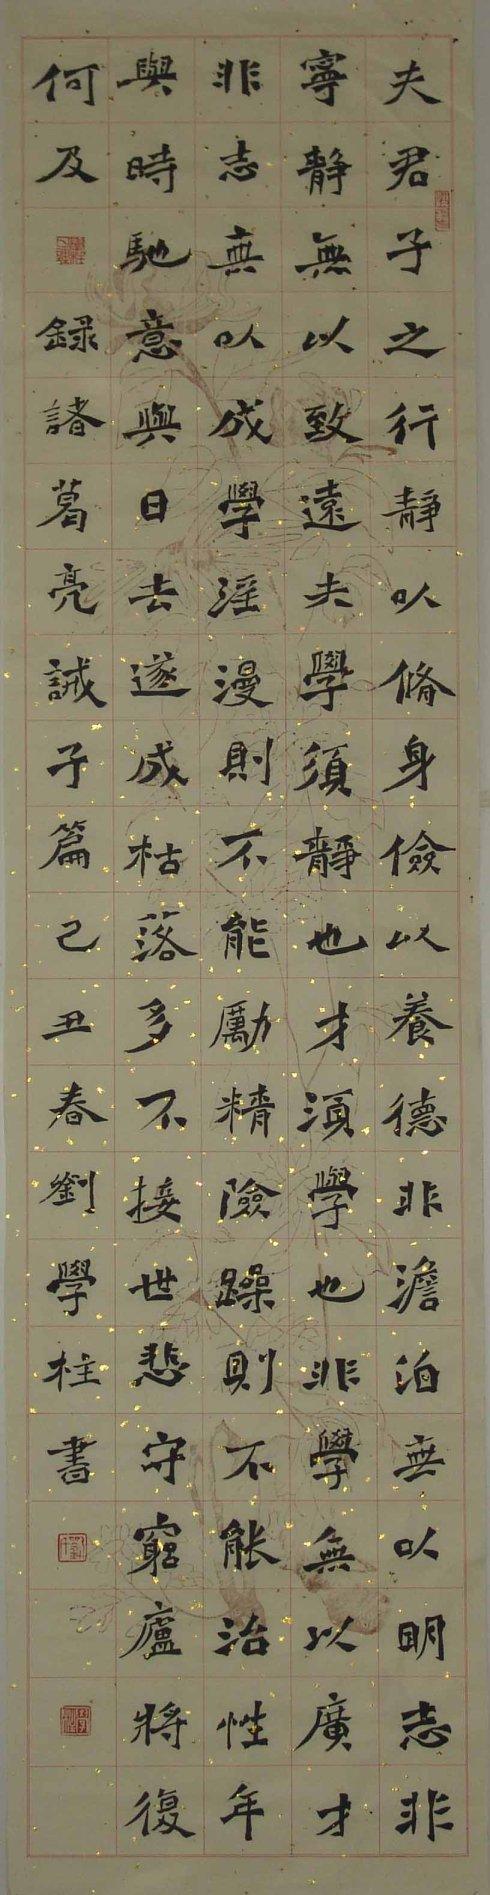 夫君子之行靜以脩身儉以養德非澹泊無以明志非
寧靜無以致遠夫學須靜也才須學也非學無以廣才
非志無以成學淫漫則不能勵精險躁則不能治性年
與時馳意與日去遂成枯落多不接世悲守窮廬將復
何及
錄諸葛亮誡子篇己丑春劉學柱書